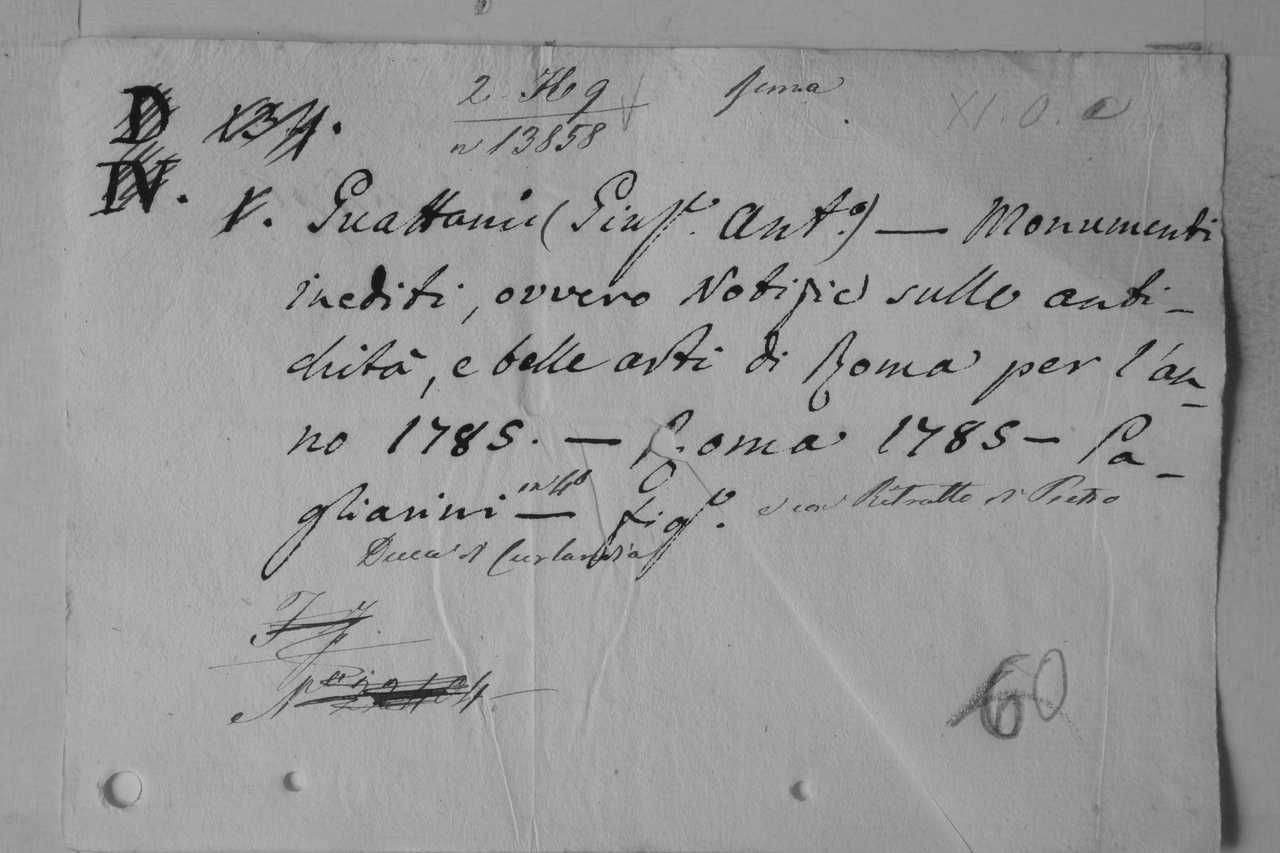 D 134. 2 Hg
n 13858
IV. V. Guattani (Gius.e Ant.o) — Monumenti
inediti, ovvero Notizie sulle anti-
chità, e belle arti di Roma per l'an-
no 1785. — Roma 1785 — Pa-
gliarini in 4o — fig.o e con Ritratto di Pietro
Duca di Curlandia
60